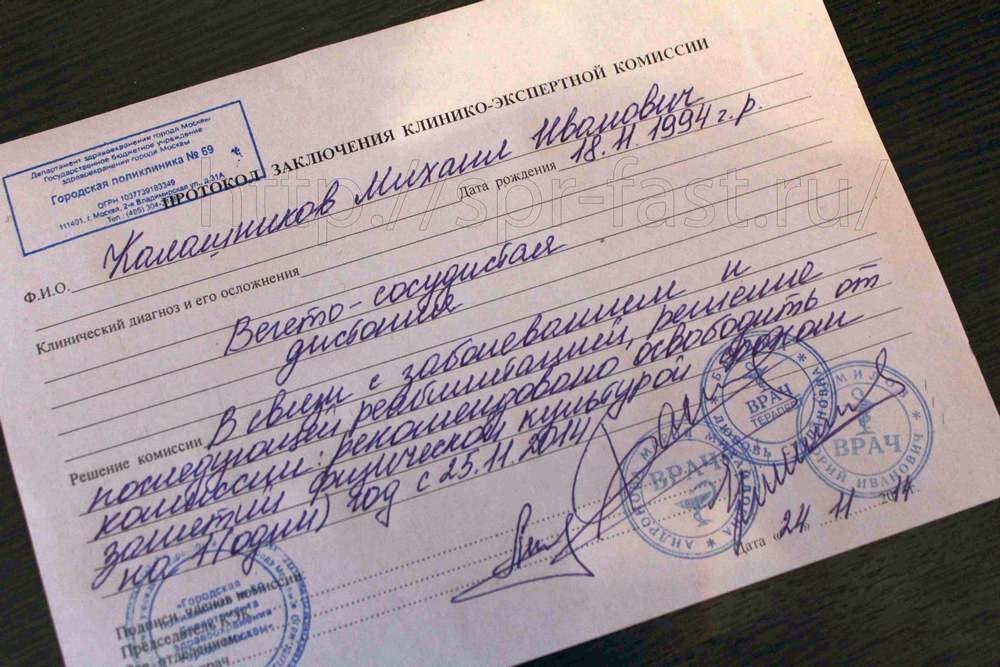 ПРОТОКОЛ ЗАКЛЮЧЕНИЯ КЛИНИКО-ЭКСПЕРТНОЙ КОМИССИИ
Департамент здравоохранения города Москвы
Государственное бюджетное учреждение
здравоохранения города Москвы
Городская поликлиника № 69
ОГРН 1037739183349
111401, г. Москва, 2-я Владимирская ул., д.31А
Тел.: (495) 304-
http://spr-fast.ru/
Ф.И.О. Калашников Михаил Иванович
Дата рождения 18.11.1994 г.р.
Клинический диагноз и его осложнения
Вегето-сосудистая
дистония
Решение комиссии В связи с заболеванием и
последующей реабилитацией, решение
комиссии: рекомендовано освободить от
занятий физической культурой сроком
на 1 (один) год с 25.11.2014
Подписи членов комиссии:
Председатель КЭК
Зав. отделением
врач
Дата «24» 11 2014
ВРАЧ
ВРАЧ
ТЕРАПЕВТ
ВРАЧ
ИВАНОВИЧ
«Городская
здравоохранения
Москвы»